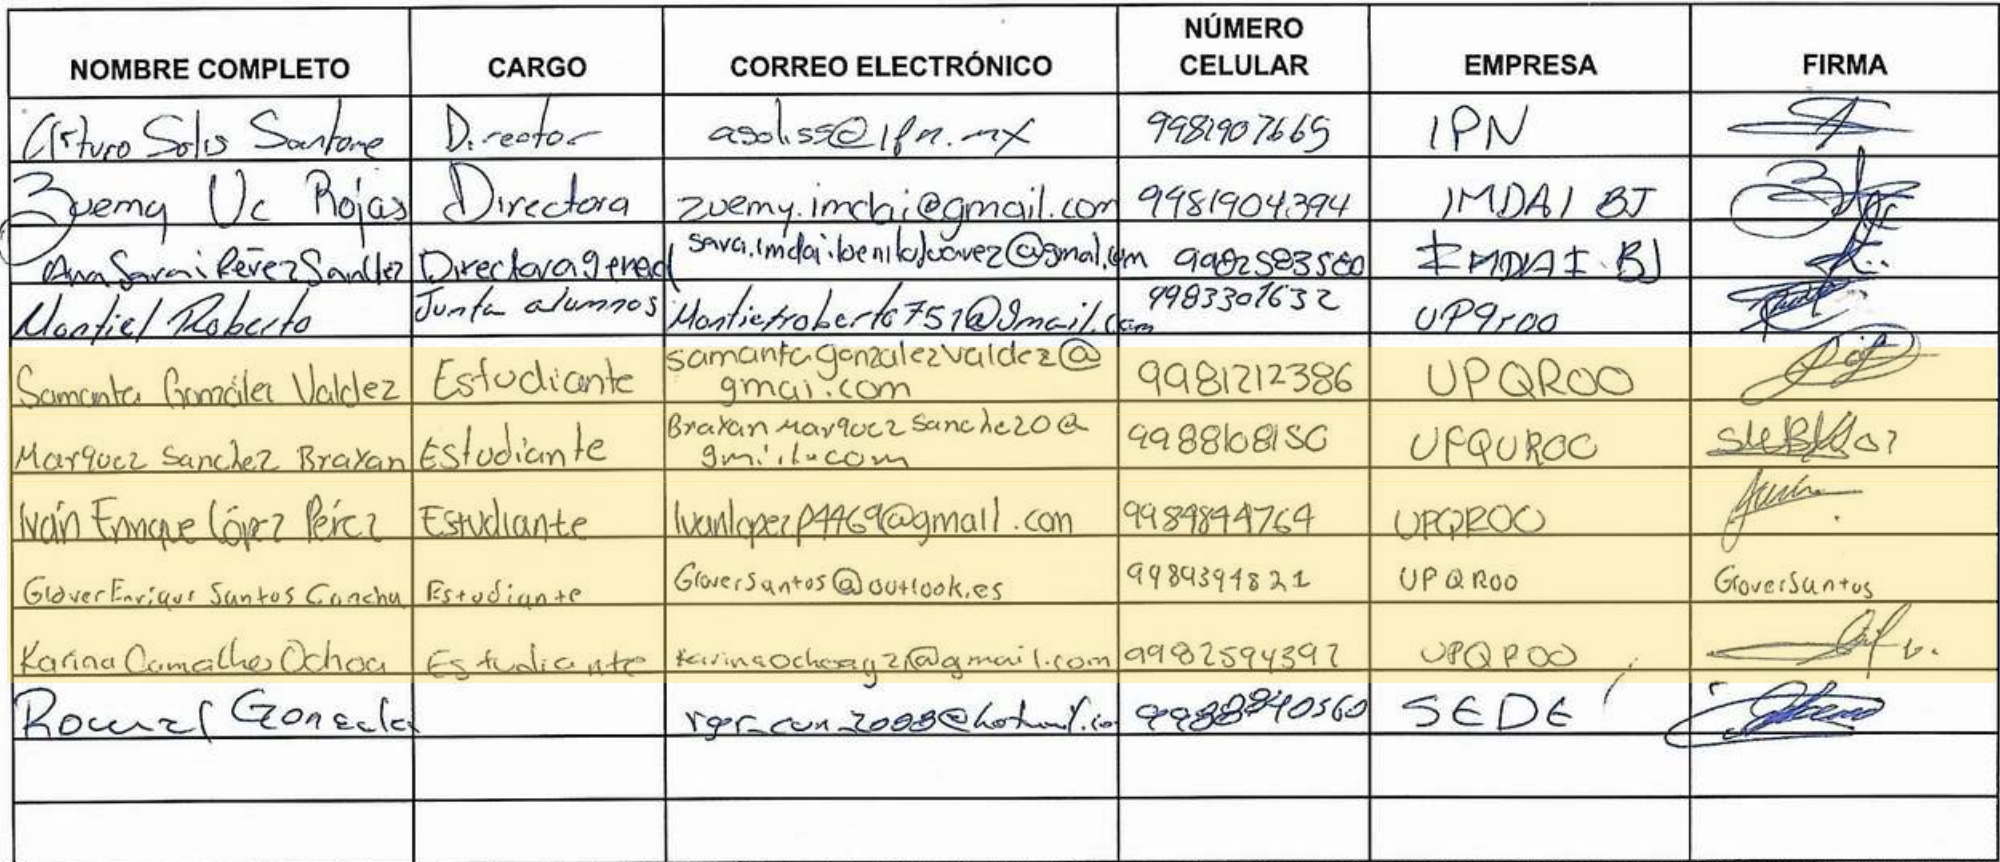 NOMBRE COMPLETO CARGO CORREO ELECTRÓNICO NÚMERO CELULAR EMPRESA FIRMA
Arturo Solis Santome Director asoliss@ipn.mx 9981907665 IPN
Zuemy Uc Rojas Directora zuemy.imdai@gmail.com 9981904394 IMDAI BJ
Ana Sarai Pérez Directora general 9982583580 IMDAI BJ
Montiel Roberto Junta alumnos Montielroberto751@gmail.com 9983301632 UPqroo
Samanta González Valdez Estudiante samantagonzalezvaldez@
gmai.com 9981212386 UPQROO
Marquez Sanchez Brayan Estudiante 
UPQUROO
Iván Enrique López Pérez Estudiante Ivanlopezp4469@gmail.com 9989844764 UPQROO
Glover Enrique Santos Concha Estudiante GloverSantos@outlook.es 9989394821 UPQROO GloverSantos
Karina Ochoa Estudiante karinaochoag2@gmail.com 9982594392 UPQROO
SEDE